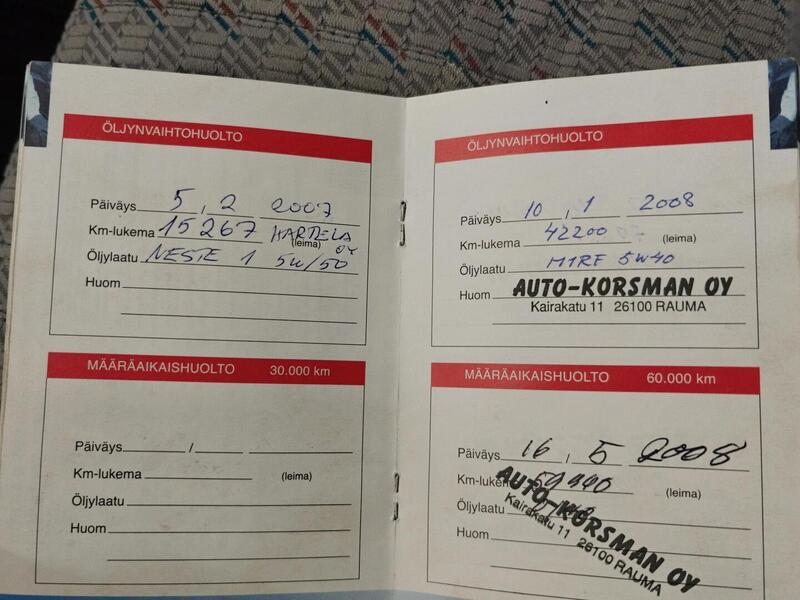 ÖLJYNVAIHTOHUOLTO
Päiväys 5 , 2 2007
Km-lukema 15267 HARTELA OY
(leima)
Öljylaatu NESTE 1 5W/50
Huom
MÄÄRÄAIKAISHUOLTO 30.000 km
Päiväys /
Km-lukema (leima)
Öljylaatu
Huom
ÖLJYNVAIHTOHUOLTO
Päiväys 10 , 1 2008
Km-lukema 42200 (leima)
Öljylaatu 5W40
Huom AUTO-KORSMAN OY
Kairakatu 11 26100 RAUMA
MÄÄRÄAIKAISHUOLTO 60.000 km
Päiväys 16 / 5 2008
Km-lukema (leima)
Öljylaatu
Huom
AUTO-KORSMAN OY
Kairakatu 11 26100 RAUMA